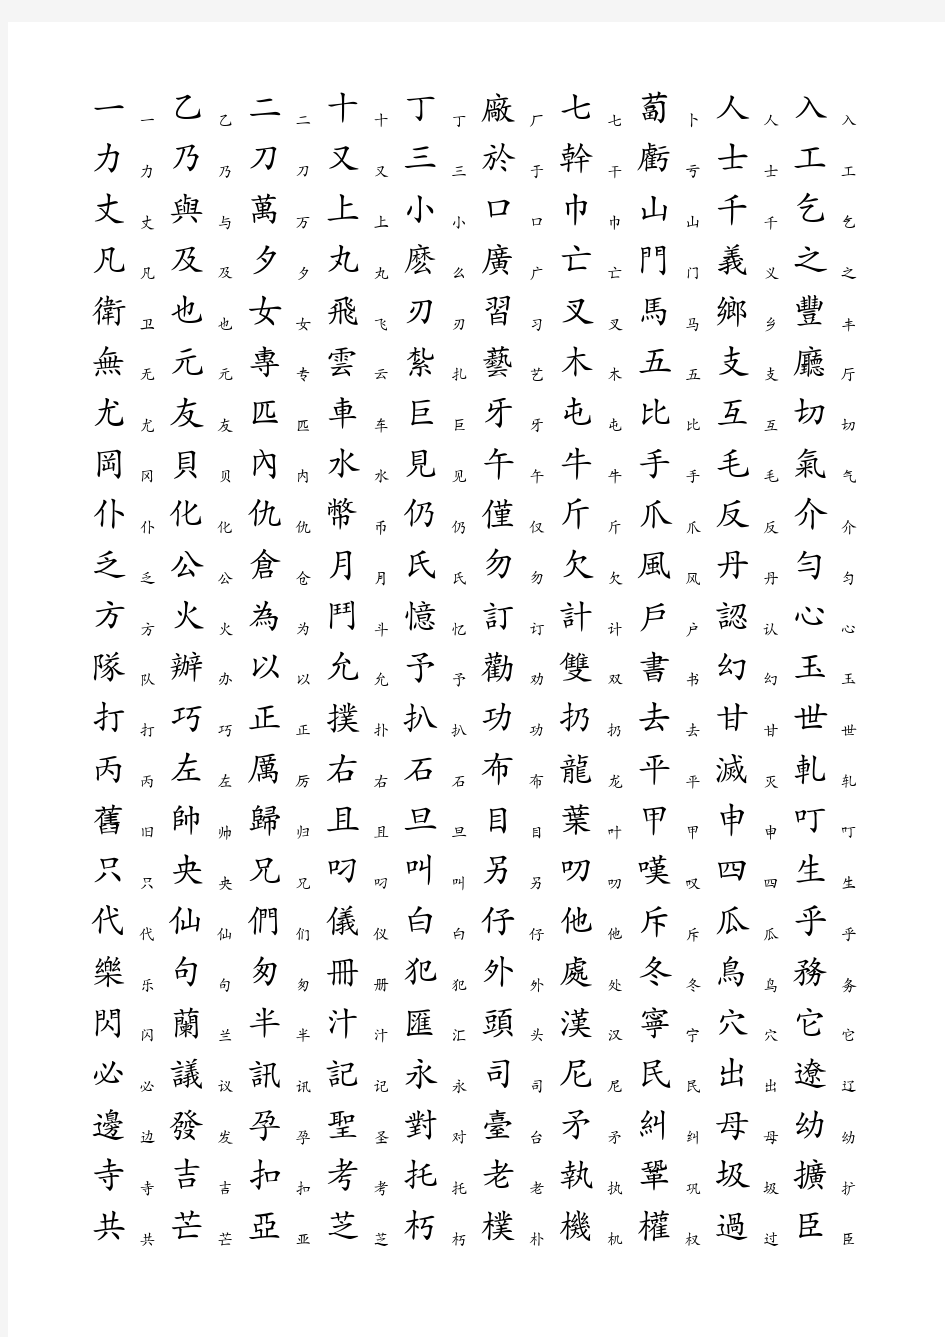 一 一 乙 乙 二 二 十 十 丁 丁 廠 厂 七 七 蔔 卜 人 人 入 入
力 力 乃 乃 刀 刀 又 又 三 三 於 于 幹 干 虧 亏 士 士 工 工
丈 丈 與 与 萬 万 上 上 小 小 口 口 巾 巾 山 山 千 千 乞 乞
凡 凡 及 及 夕 夕 丸 丸 麽 么 廣 广 亡 亡 門 门 義 义 之 之
衛 卫 也 也 女 女 飛 飞 刃 刃 習 习 叉 叉 馬 马 鄉 乡 豐 丰
無 无 元 元 專 专 雲 云 紮 扎 藝 艺 木 木 五 五 支 支 廳 厅
尤 尤 友 友 匹 匹 車 车 巨 巨 牙 牙 屯 屯 比 比 互 互 切 切
岡 冈 貝 贝 內 内 水 水 見 见 午 午 牛 牛 手 手 毛 毛 氣 气
仆 仆 化 化 仇 仇 幣 币 仍 仍 僅 仅 斤 斤 爪 爪 反 反 介 介
乏 乏 公 公 倉 仓 月 月 氏 氏 勿 勿 欠 欠 風 风 丹 丹 勻 匀
方 方 火 火 為 为 鬥 斗 憶 忆 訂 订 計 计 戶 户 認 认 心 心
隊 队 辦 办 以 以 允 允 予 予 勸 劝 雙 双 書 书 幻 幻 玉 玉
打 打 巧 巧 正 正 撲 扑 扒 扒 功 功 扔 扔 去 去 甘 甘 世 世
丙 丙 左 左 厲 厉 右 右 石 石 布 布 龍 龙 平 平 滅 灭 軋 轧
舊 旧 帥 帅 歸 归 且 且 旦 旦 目 目 葉 叶 甲 甲 申 申 叮 叮
只 只 央 央 兄 兄 叼 叼 叫 叫 另 另 叨 叨 嘆 叹 四 四 生 生
代 代 仙 仙 們 们 儀 仪 白 白 仔 仔 他 他 斥 斥 瓜 瓜 乎 乎
樂 乐 句 句 匆 匆 冊 册 犯 犯 外 外 處 处 冬 冬 鳥 鸟 務 务
閃 闪 蘭 兰 半 半 汁 汁 匯 汇 頭 头 漢 汉 寧 宁 穴 穴 它 它
必 必 議 议 訊 讯 記 记 永 永 司 司 尼 尼 民 民 出 出 遼 辽
邊 边 發 发 孕 孕 聖 圣 對 对 臺 台 矛 矛 糾 纠 母 母 幼 幼
寺 寺 吉 吉 扣 扣 考 考 托 托 老 老 執 执 鞏 巩 圾 圾 擴 扩
共 共 芒 芒 亞 亚 芝 芝 朽 朽 樸 朴 機 机 權 权 過 过 臣 臣